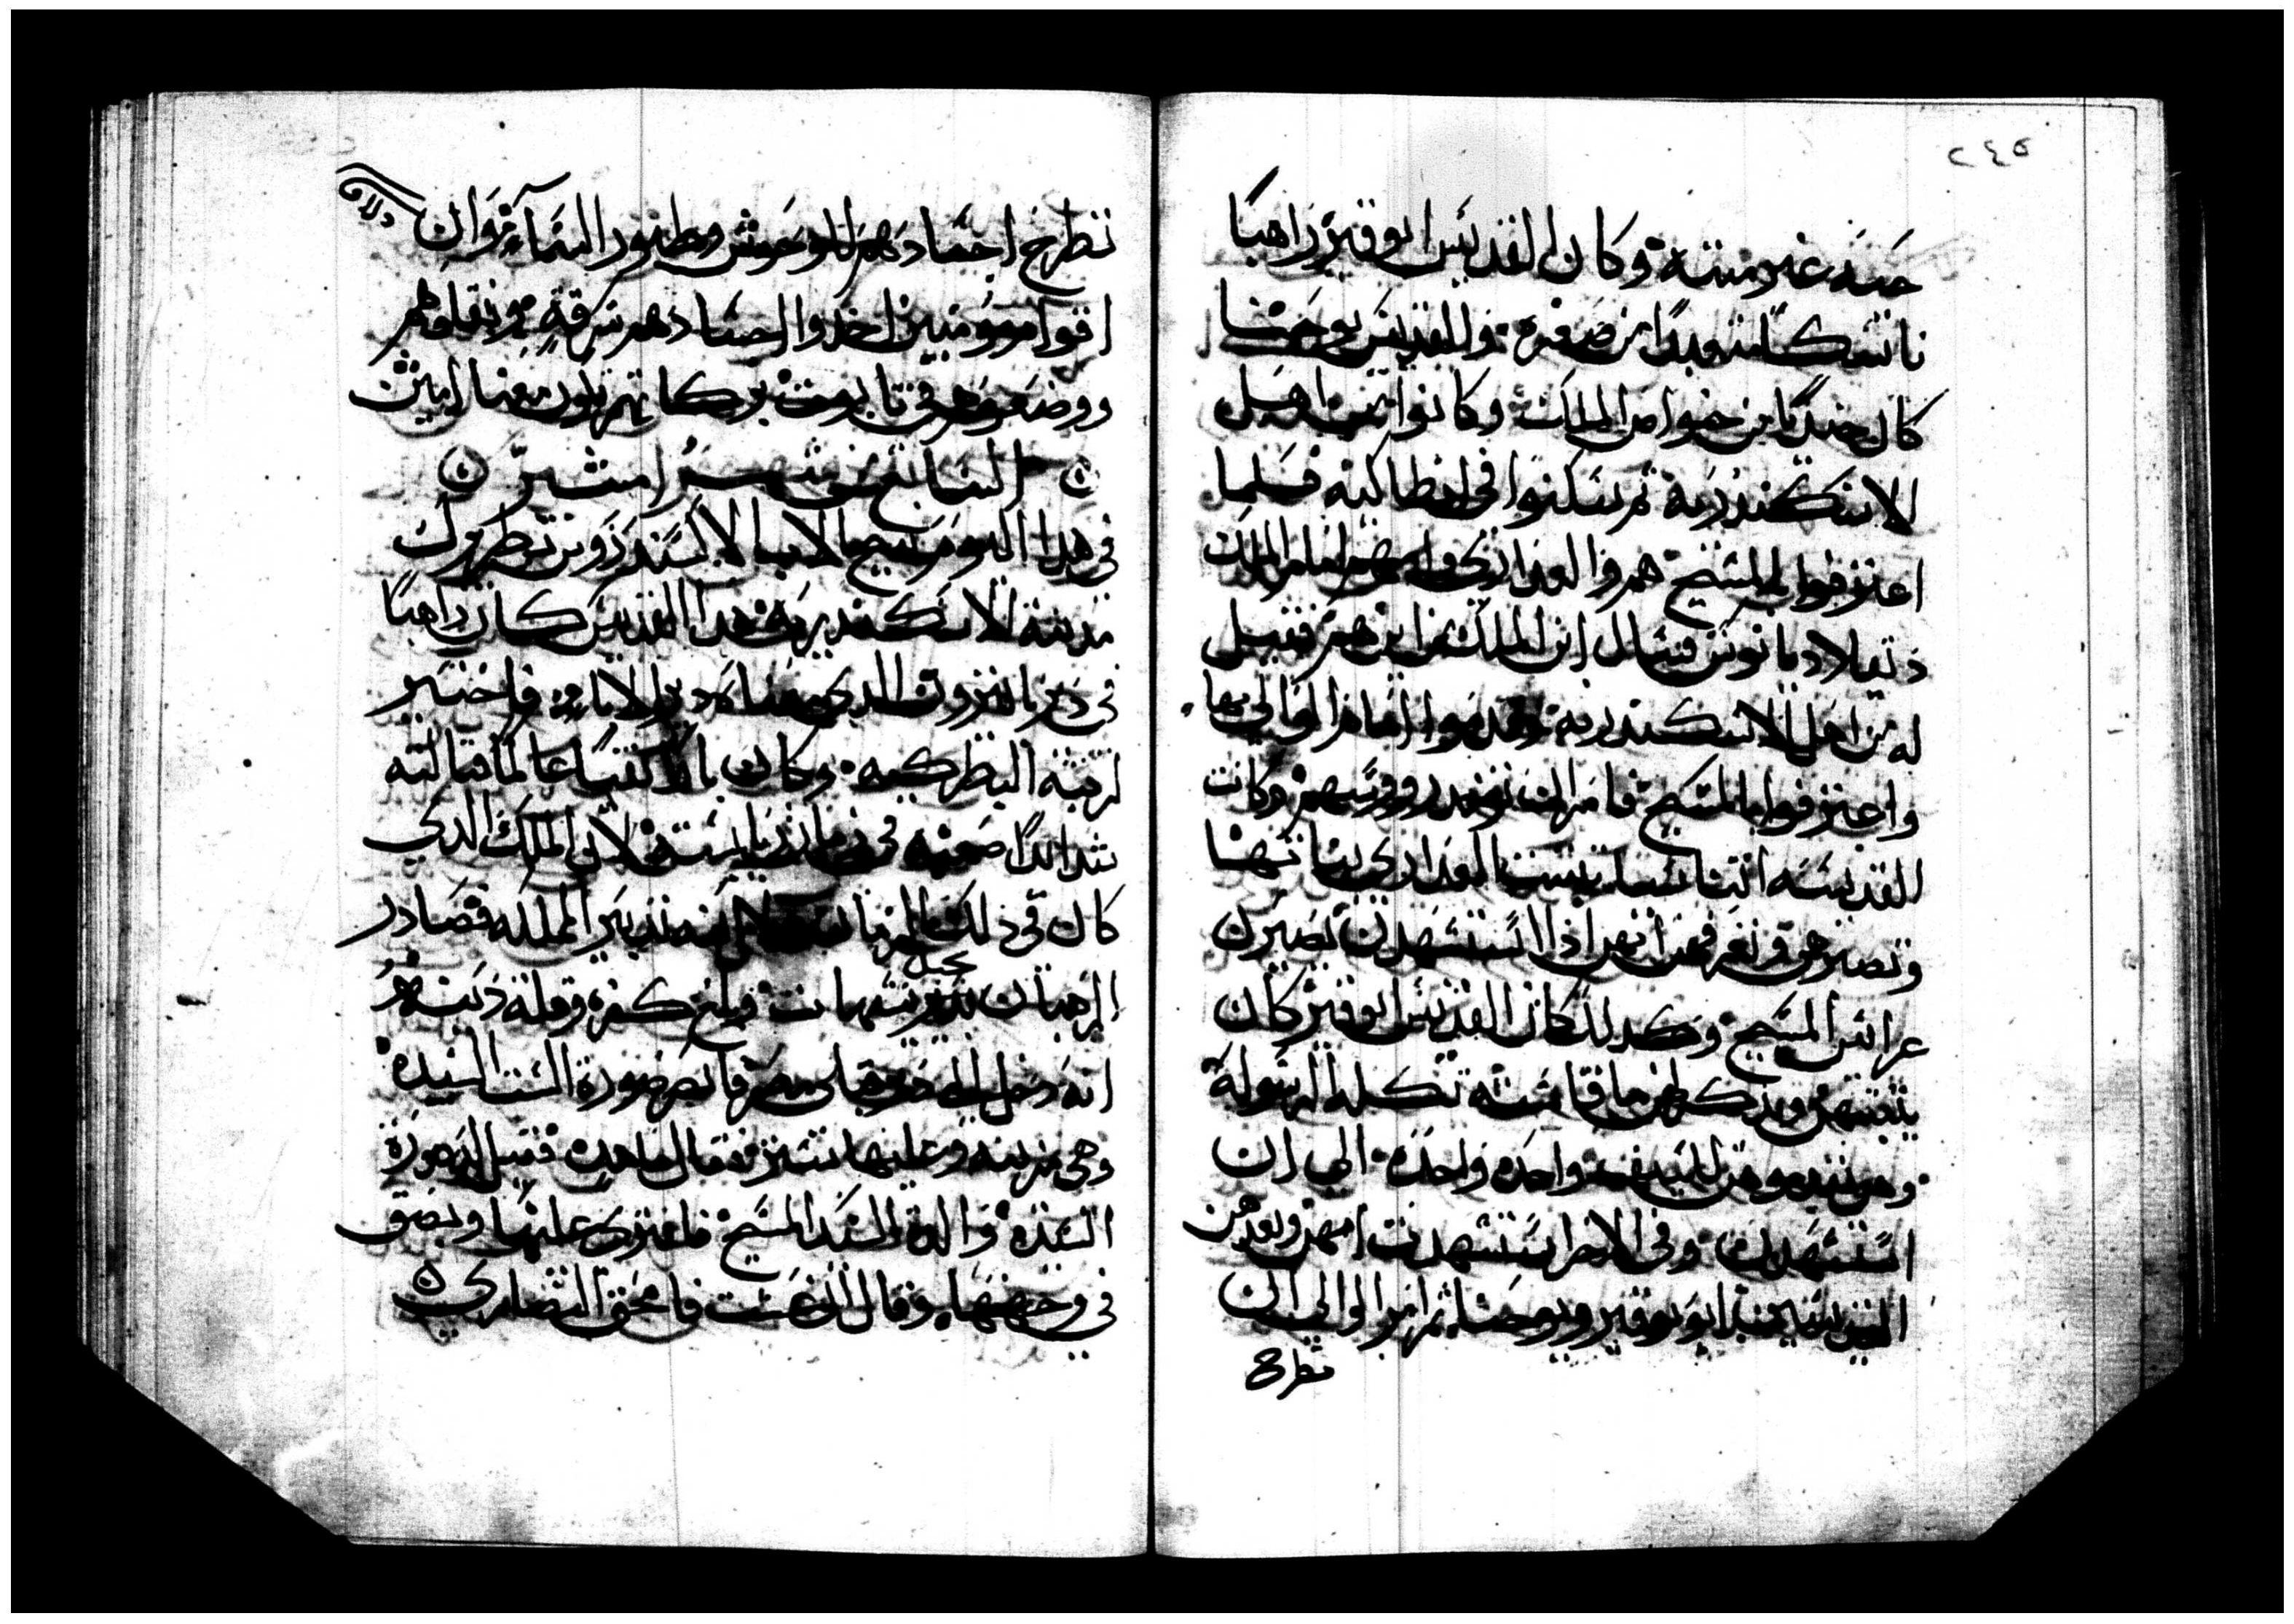 ٢٤٥
حسنه غير ميته وكان القديس ابوقير راهبا
ناسكا متعبدا من صغره والقديس يوحنا
كان جنديا من خواص الملك وكانوا من اهل
الاسكندريه ثم سكنوا في انطاكيه فلما
اعترفوا بالمسيح هم والعذارى وامهم امام الملك
دقيلاديانوس فسال ابن الملك من اين هم فقيل
له من اهل الاسكندريه فقدموا امام الوالي بها
واعترفوا بالمسيح فامر الوالي رووسهم وكانت
القديسه اتناسيا تثبت العذارى بناتها
وتصبرهن وتعرفهن انهن اذا استشهدن تصيرن
عرايس المسيح وكذلك كان القديس ابوقير كان
يثبتهن ويذكرهن ما قاسته تكله الرسولة
وهن للسيف واحده واحده الي ان
استشهدن وفي الاخر استشهدت امهن وبعدهن
القديسين ابوقير ويوحنا ثم امر الوالي ان
تطرح
تطرح اجسادهم للوحوش وطيور السماء وان
اقواما مومنين اخدوا اجسادهم سرقة ونقلوهم
ووضعوهم في تابوت بركاتهم تكون معنا امين
السابع من شهر امشير
في هدا اليوم تنيح الانبا الاكسندروس بطريرك
مدينة الاسكندريه هدا القديس كان راهبا
في دير بامنروت الدي معناه دير الاباء فاختير
لرتبة البطركيه وكان عالما قبالته
شدايدا صعبه في زمان رياسته لان الملك الدي
كان في ذلك الزمان تدبير المملكه فصادر
الرهبان نحيل وبلغ كفره وقلة دينه
انه دخل الى مصر فابصر صورة الست السيده
وهي مزينه وعليها ستر فقال ما هده فقيل له صورة
السيده والدة السيد المسيح فافترى عليها وبصق
في وجهها وقال ان عشت فامحق النصارى